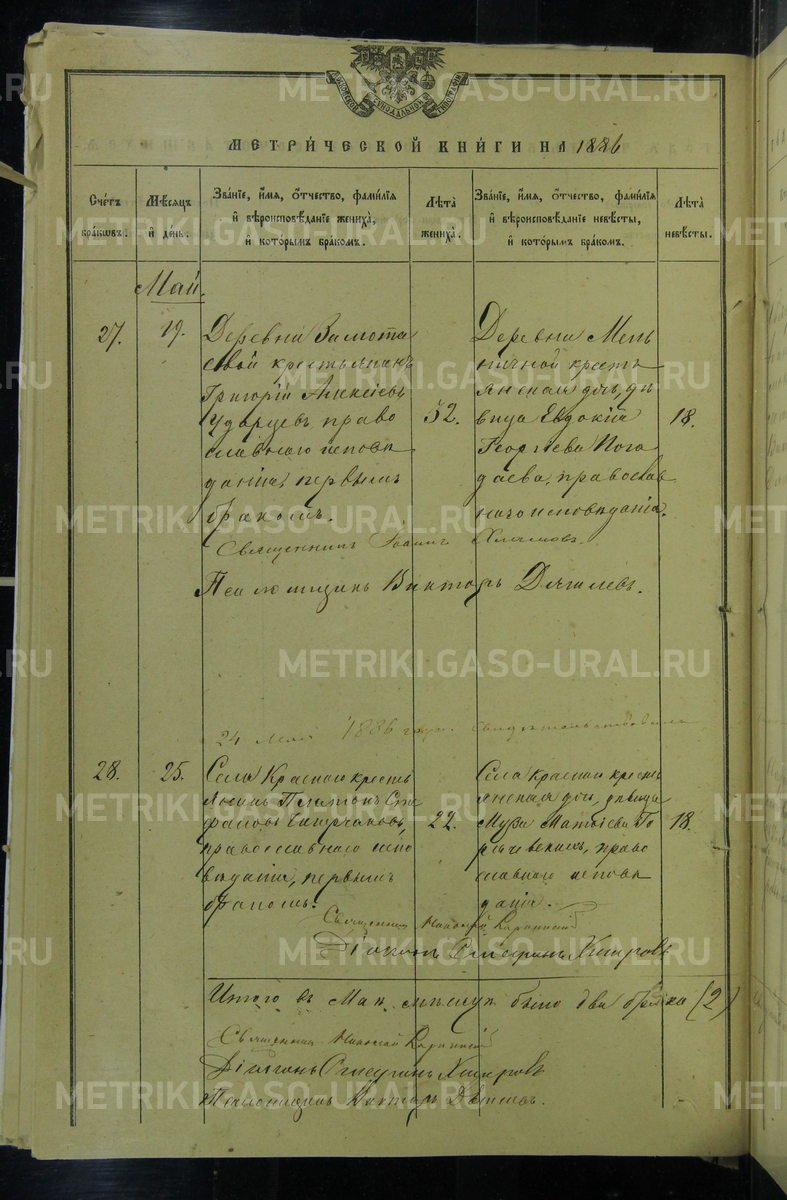 МЕТРИ́ЧЕСКОЙ КНИ́ГИ НА 1886
Сче́тъ бра́кωвъ.
Мѣ́сяцъ и҆ де́нь.
Зва́нїе, и҆́мя, ѻ҆́тчество, фамѵ́лїя
и҆ вѣроисповѣ́данїе жениха̀,
и҆ кото́рымъ бра́комъ.
Лѣ́та жениха̀.
Зва́нїе, и҆́мя, ѻ҆́тчество, фамѵ́лїя
и҆ вѣроисповѣ́данїе невѣ́сты,
и҆ кото́рымъ бра́комъ.
Лѣ́та невѣ́сты.
Май.
27.
19.
Деревни
крестьянинъ
Григорій Алексѣевъ
Ударцевъ право
славнаго исповѣ
данія, первымъ
бракомъ.
Деревни Мель
ничной кресть
янская дочь, дѣ
вица Евдокія
Георгіева Пога
даева, православ
наго исповѣданія.
18.
Священникъ Іоаннъ
Псаломщикъ Викторъ
24 Мая 1886 года свидѣтельствовалъ
28.
25.
Села Краснаго кресть
янинъ Платонъ Сте
фановъ
православнаго испо
вѣданія, первымъ
бракомъ.
22.
Села Краснаго кресть
янская дочь, дѣвица
Матѳіева
право
славнаго исповѣ
данія.
18.
Священникъ Николай
Діаконъ Стефанъ Хитровъ
Итого въ Маѣ мѣсяцѣ было два брака (2)
Священникъ Николай
Діаконъ Стефанъ Хитровъ
Псаломщикъ Викторъ
METRIKI.GASO-URAL.RU